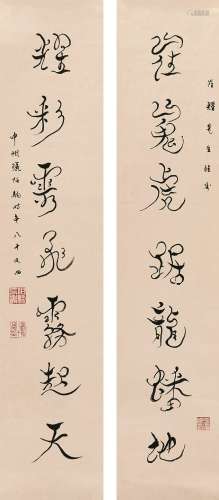 崔嵬虎踞龍蟠地
崔耀先生雅屬
耀彩飛霧起天
中州張伯駒時年八十又四